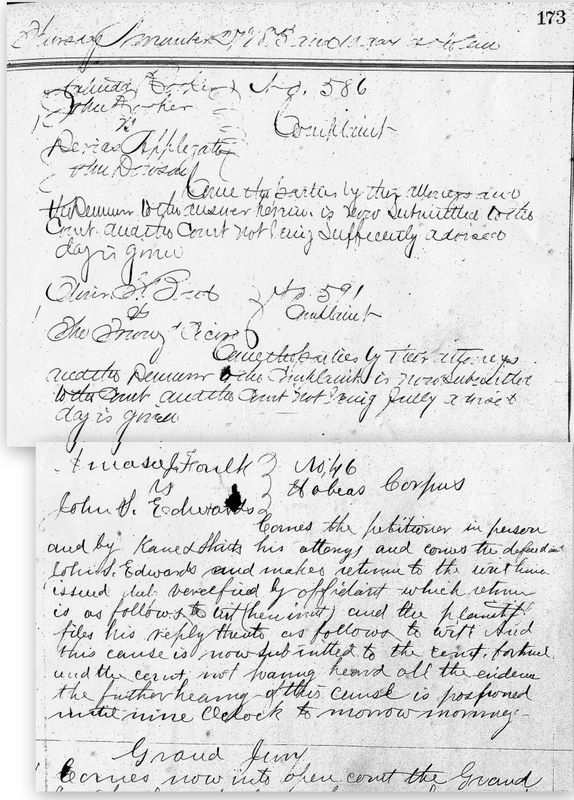 173
Thursday November 27, 1885 and day
Parker No. 586
John Parker
vs Complaint
Applegate
John Dowson
Come the parties by their attorneys and
the Demurrer to the answer herein is now submitted to the
Court and the Court not being sufficiently advised
day is given
Oliver No. 591
vs Complaint
The
Come the parties by their attorneys
and the Demurrer to the Complaint is now submitted
to the Court and the Court not being fully advised
day is given
Foulk No. 46
vs Habeas Corpus
John S. Edwards
Comes the petitioner in person
and by Kane & his attorneys and comes the defendant
John S. Edwards and makes return to the writ herein
issued duly verified by affidavit which return
is as follows to wit (here insert) and the plaintiff
files his reply thereto as follows to wit And
this cause is now submitted to the court for trial
and the court not having heard all the evidence
the further hearing of this cause is postponed
until nine O'clock to morrow morning.
Grand Jury
Comes now into open court the Grand